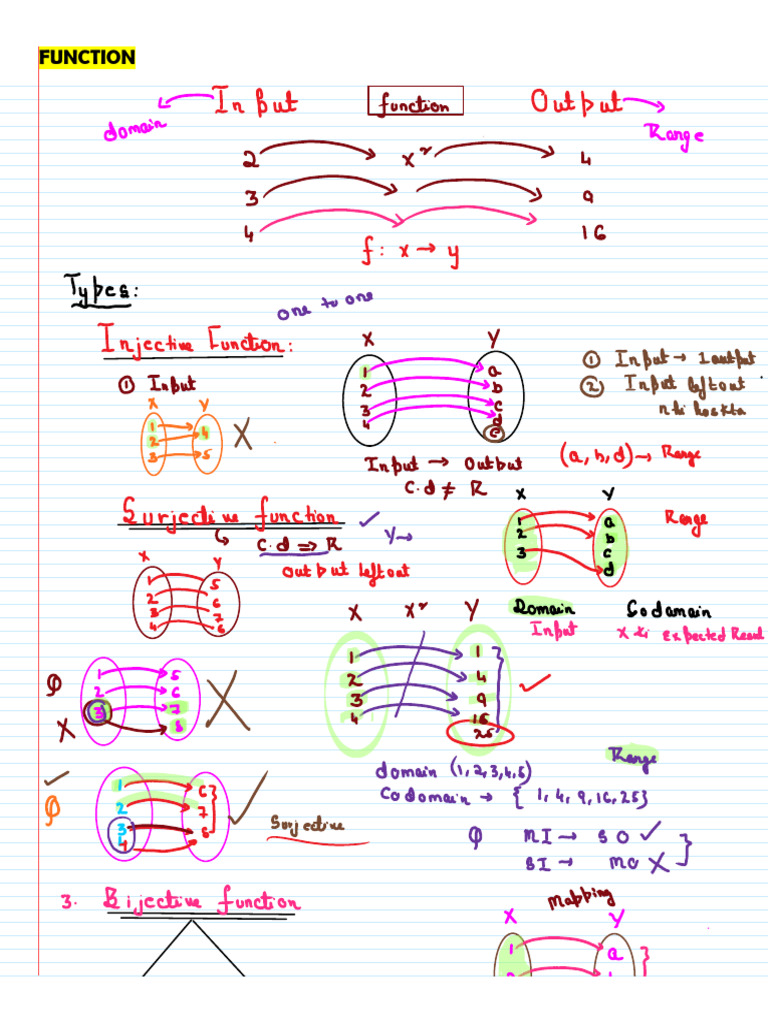 FUNCTION
Input function Output
domain Range
2 x² 4
3 9
4 16
f: x → y
Types:
one to one
Injective Function:
X Y
1 a
2 b
3 c
4 d
e
① Input → 1 output
② Input left out
nhi
① Input
X Y
1
2 4
3 5
X
Input → Output
C.d ≠ R
(a, b, d) → Range
Surjective function ✓
C.d => R
Y →
output left out
X Y
1 a
2 b
3 c
d
Range
X Y
1 5
2 6
3 7
4 8
X X² Y
1 1
2 4
3 9
4 16
25
Domain Codamain
Input X ki Expected Result
Q
X
1 5
2 6
3 7
8
X
domain (1,2,3,4,5)
Codomain → {1,4,9,16,25}
Range
Q
1 6
2 7
3 8
4
Surjective
Q MI → SO ✓
SI → MO X
3. Bijective function
Mapping
X Y
1 a